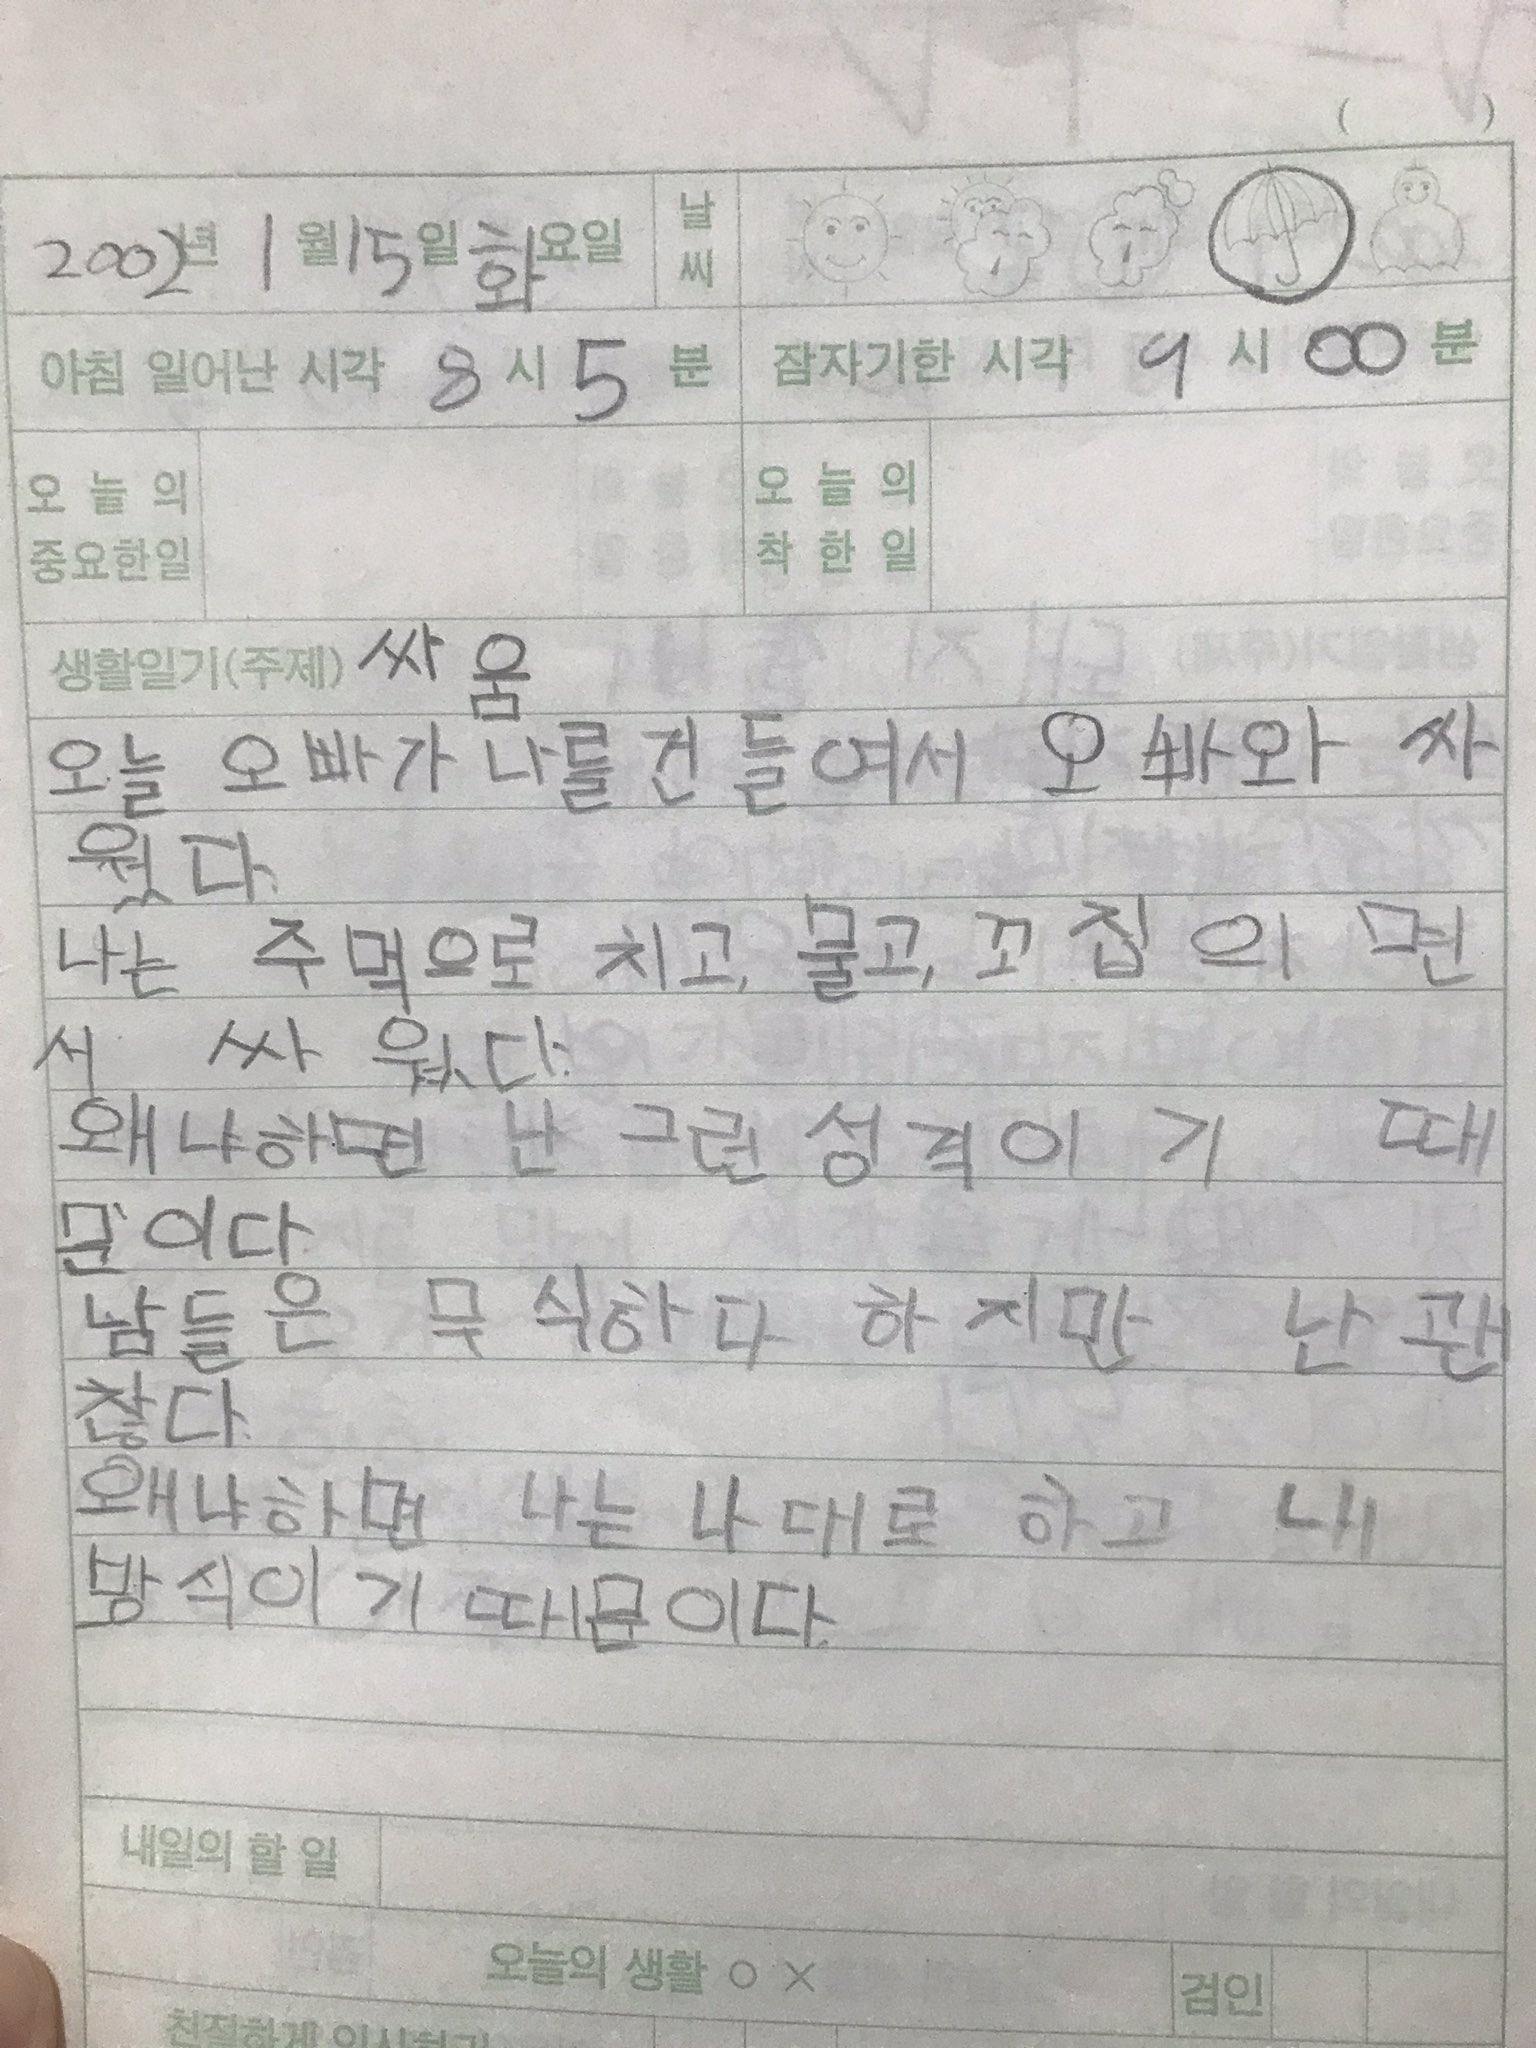 ( )
2002년 1월 15일 화요일 날씨
아침 일어난 시각 8시 5분 잠자기한 시각 9시 00분
오늘의 중요한일 오늘의 착한일
생활일기(주제) 싸움
오늘 오빠가 나를건들여서 오빠와 싸
웠다.
나는 주먹으로 치고, 물고, 꼬집의면
서 싸웠다.
왜냐하면 난 그런성격이기 때
문이다.
남들은 무식하다 하지만 난 괜
찮다.
왜냐하면 나는 나대로 하고 내
방식이기 때문이다.
내일의 할 일
오늘의 생활 ○ × 검인
친절하게 인사하기